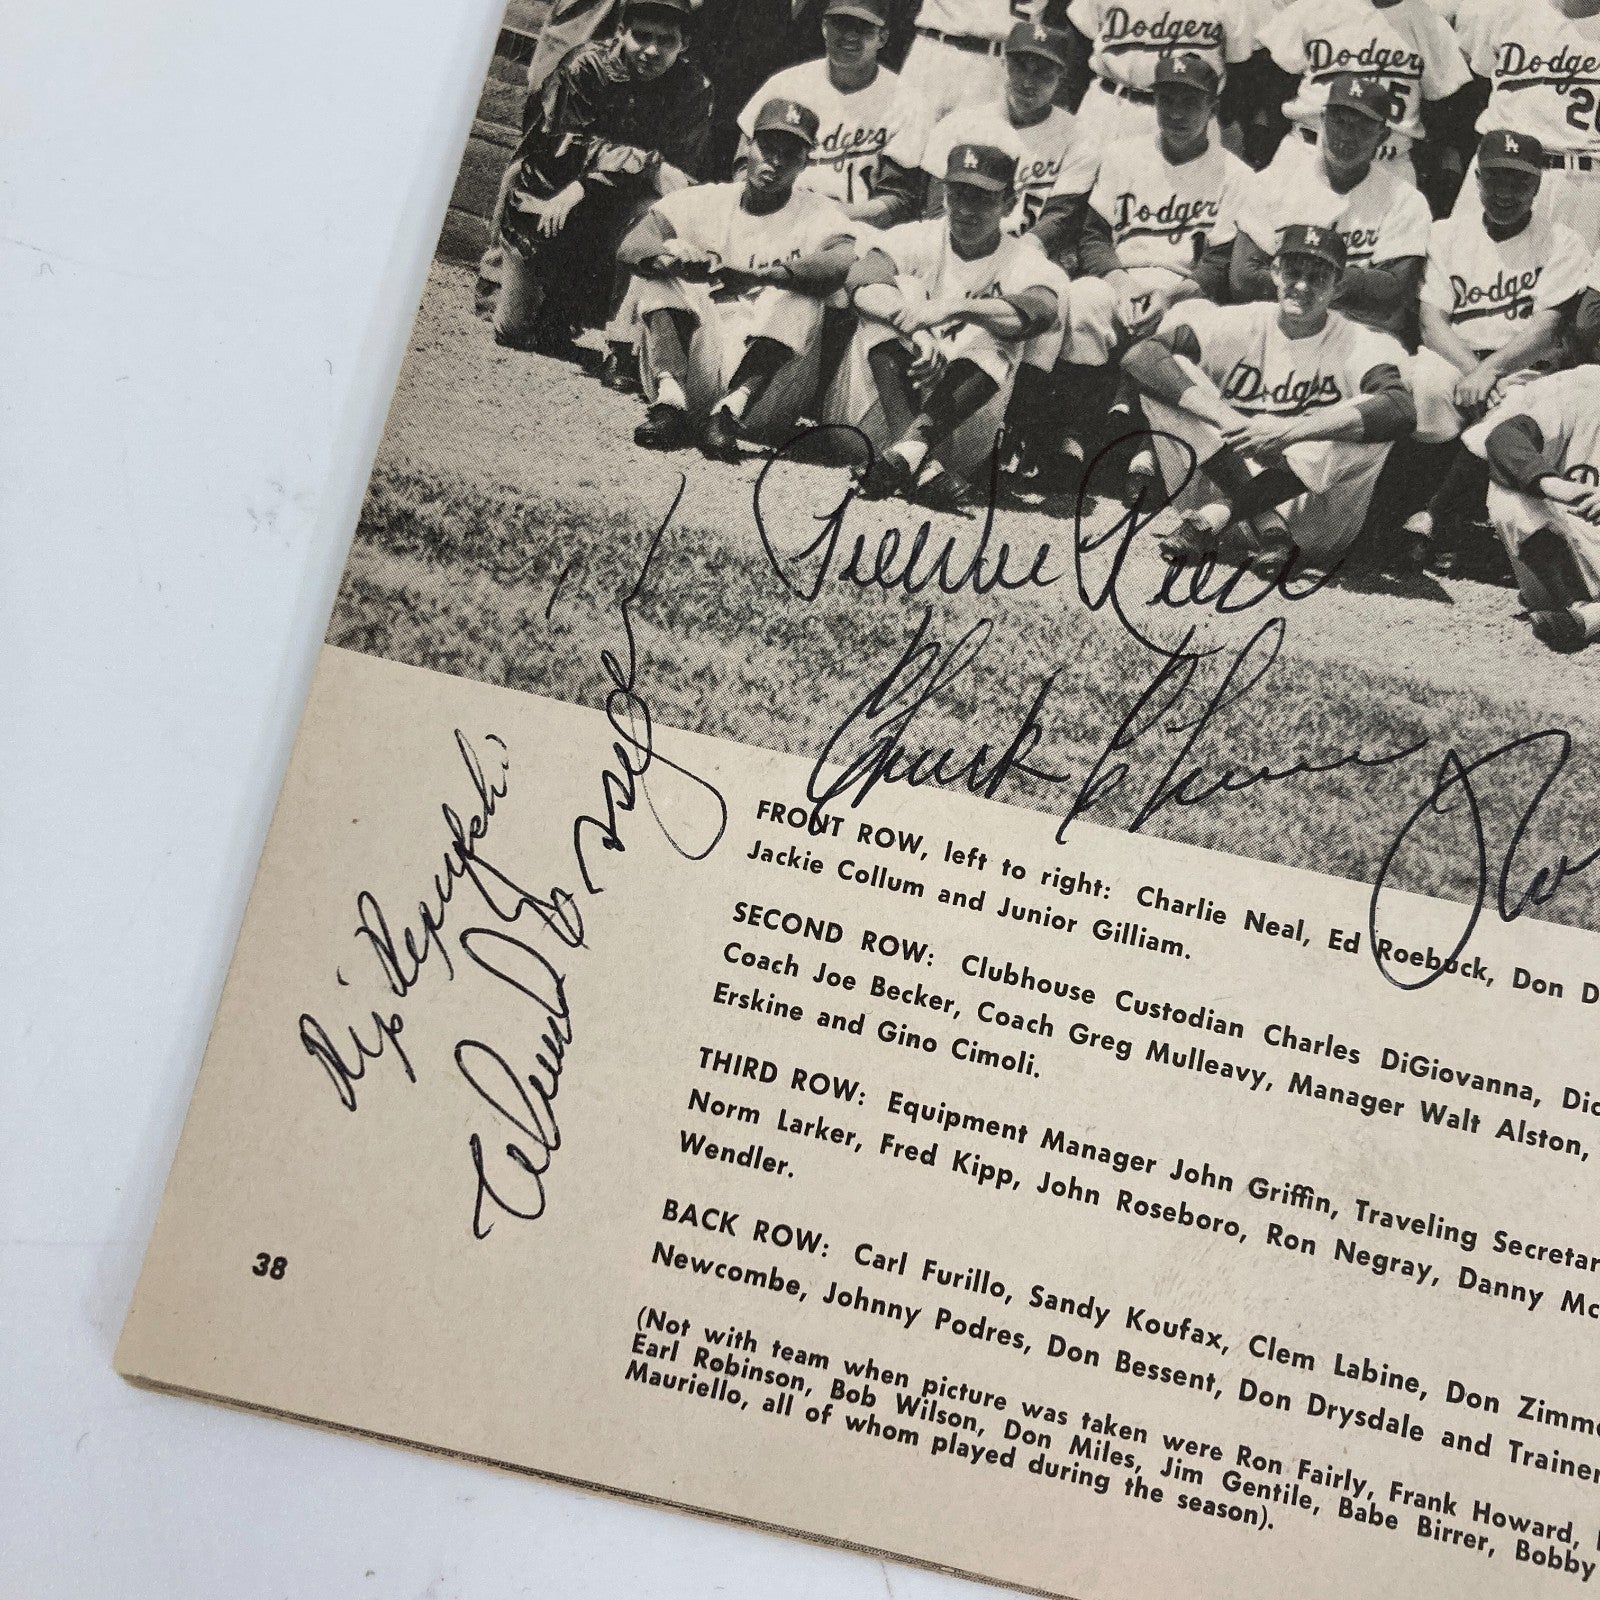 Dodgers
Dodgers
Dodge
Dodgers
Dodge
Dodgers
Pee Wee Reese
Rip Repulski
FRONT ROW, left to right: Charlie Neal, Ed Roebuck, Don D
Jackie Collum and Junior Gilliam.
SECOND ROW: Clubhouse Custodian Charles DiGiovanna, Dic
Coach Joe Becker, Coach Greg Mulleavy, Manager Walt Alston,
Erskine and Gino Cimoli.
THIRD ROW: Equipment Manager John Griffin, Traveling Secretar
Norm Larker, Fred Kipp, John Roseboro, Ron Negray, Danny Mc
Wendler.
BACK ROW: Carl Furillo, Sandy Koufax, Clem Labine, Don Zimme
Newcombe, Johnny Podres, Don Bessent, Don Drysdale and Trainer
(Not with team when picture was taken were Ron Fairly, Frank Howard,
Earl Robinson, Bob Wilson, Don Miles, Jim Gentile, Babe Birrer, Bobby
Mauriello, all of whom played during the season).
38